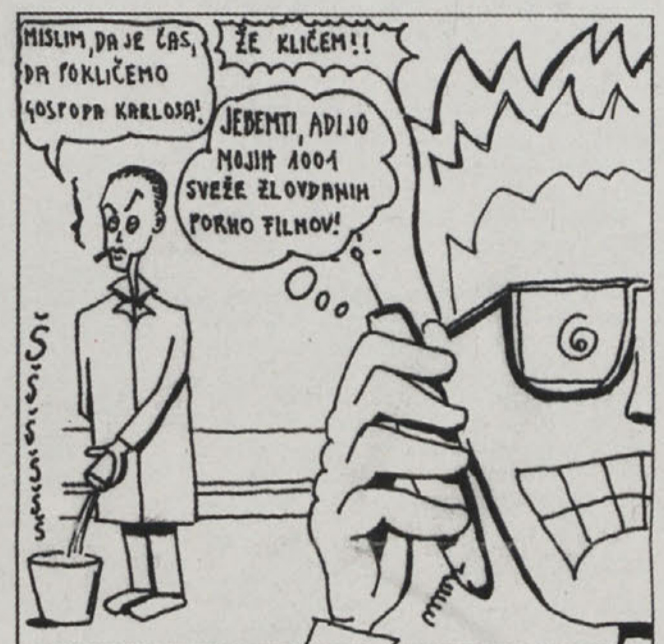 MISLIM, DA JE ČAS,
DA POKLIČEMO
GOSPODA KARLOSA!
ŽE KLIČEM!!
JEBEMTI, ADIJO
MOJIH 1001
SVEŽE ZLOVDANIH
PORNO FILMOV!